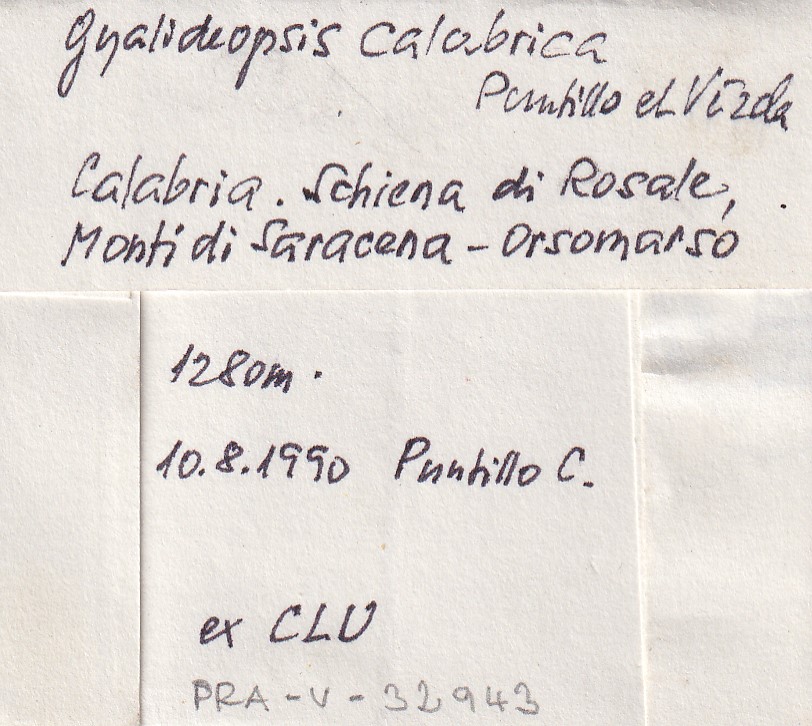 Gyalideopsis calabrica
Puntillo et Vězda
Calabria. Schiena di Rosale,
Monti di Saracena - Orsomarso
1280m.
10.8.1990 Puntillo C.
ex CLU
PRA-V-32943